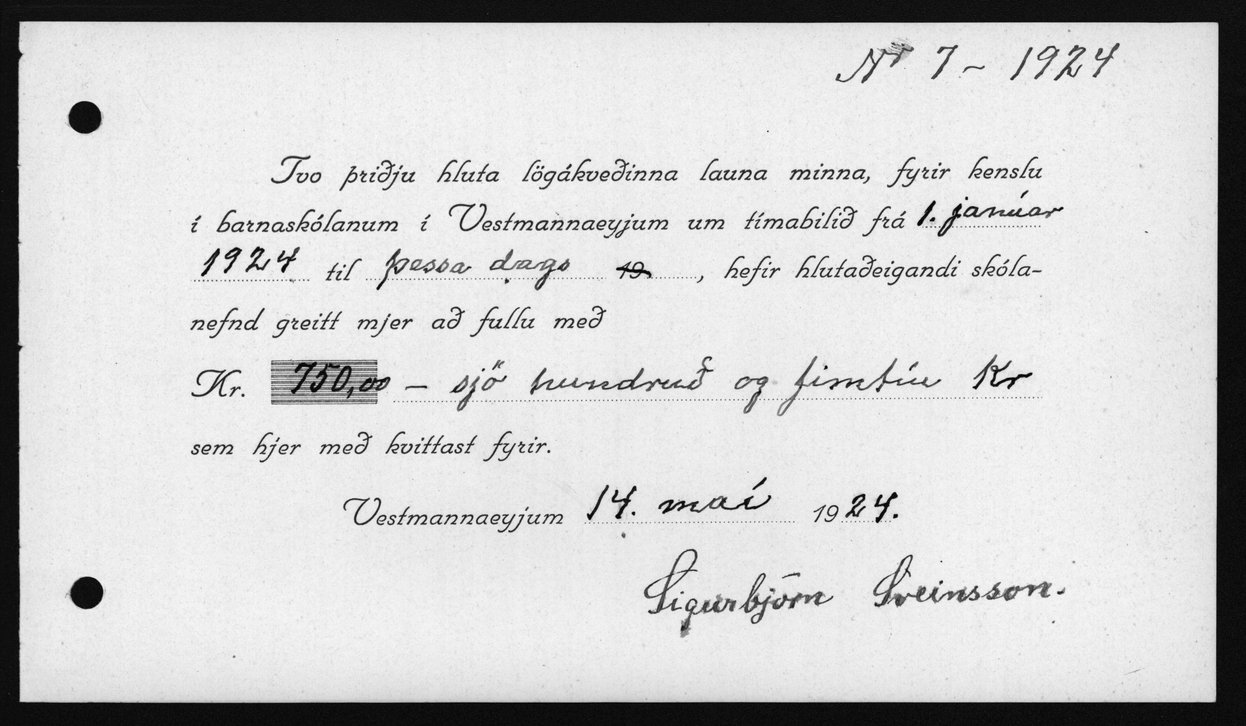 Nr 7 – 1924
Tvo þriðju hluta lögákveðinna launa minna, fyrir kenslu
í barnaskólanum í Vestmannaeyjum um tímabilið frá 1. janúar
1924 til þessa dags 19 , hefir hlutaðeigandi skóla-
nefnd greitt mjer að fullu með
Kr. 750,00 – sjö hundruð og fimtíu Kr
sem hjer með kvittast fyrir.
Vestmannaeyjum 14. maí 1924.
Sigurbjörn Sveinsson.